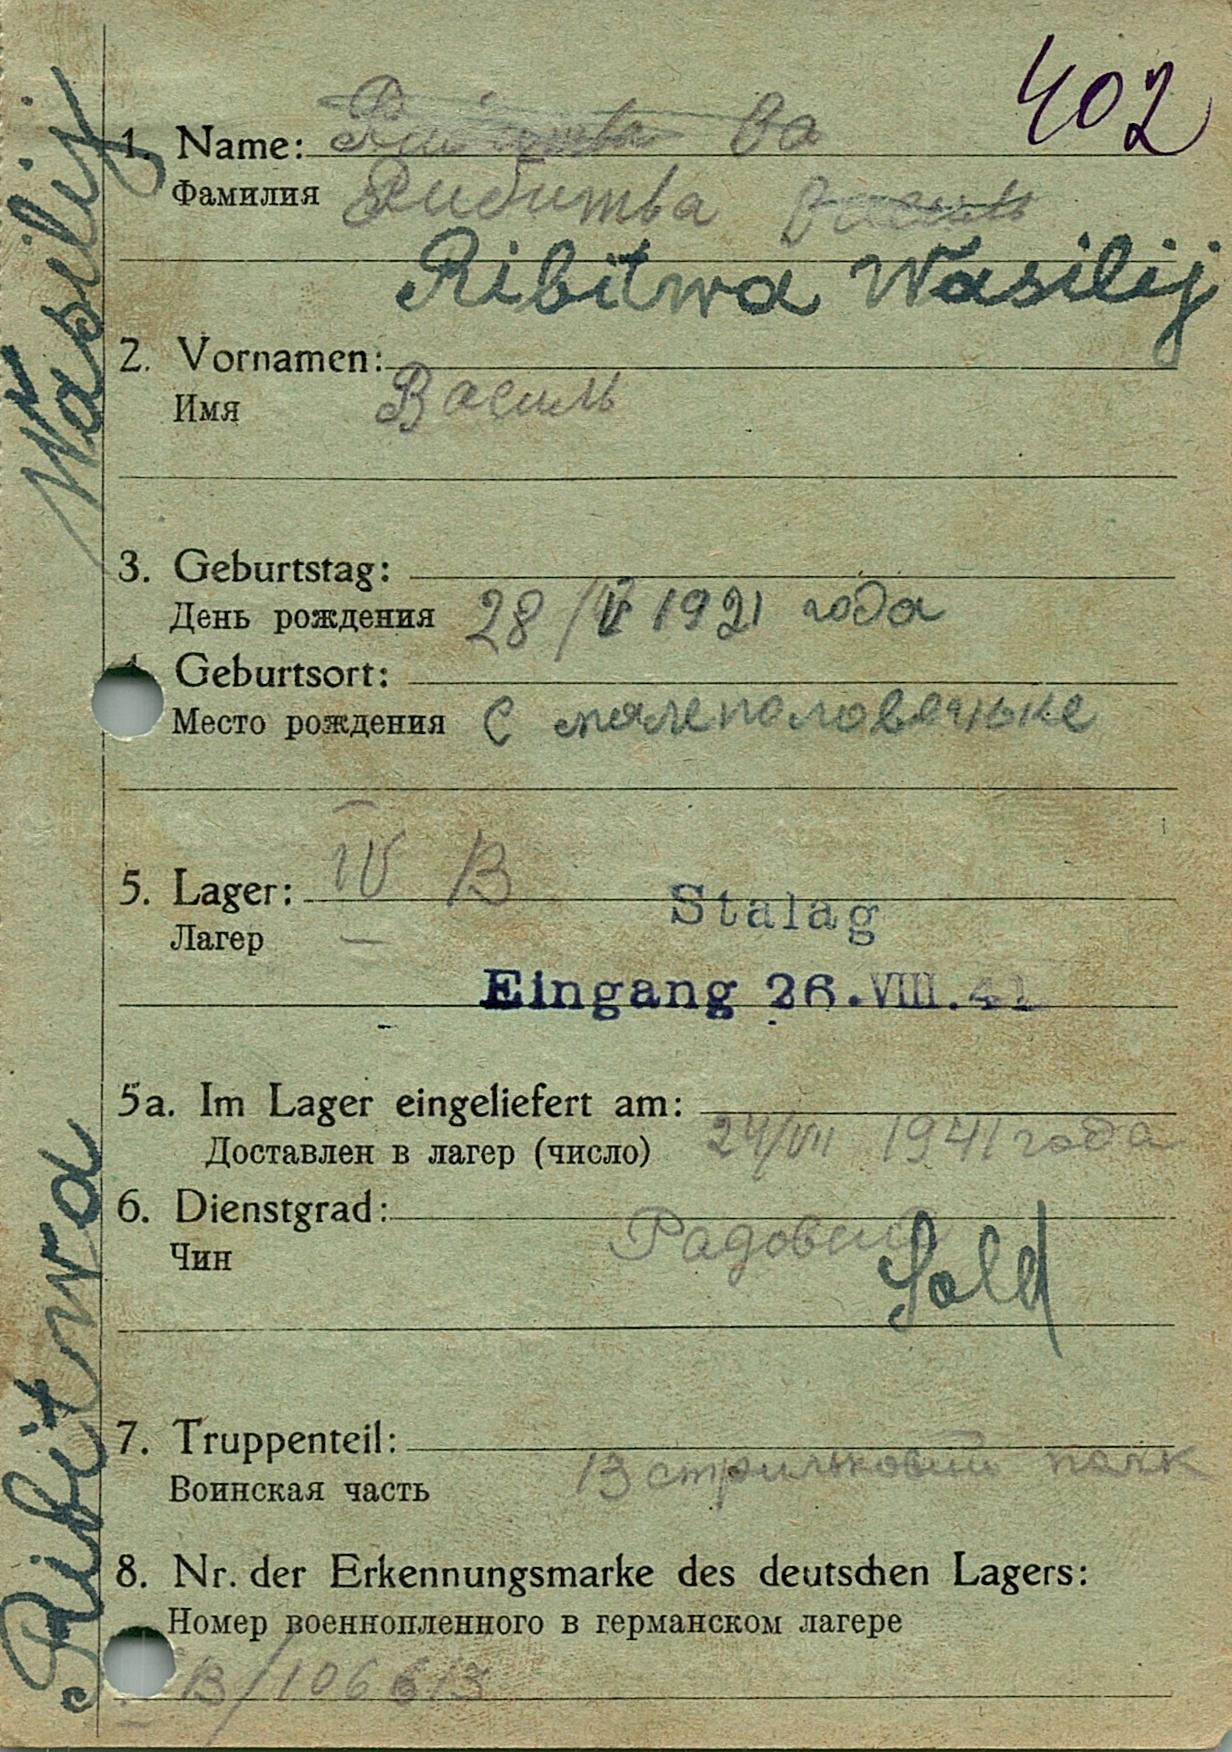 402
1. Name: Ва
Фамилия Рибитва Василь
Ribitwa Wasilij
2. Vornamen:
Имя Василь
3. Geburtstag:
День рождения 28/V 1921 года
4. Geburtsort:
Место рождения С мялеполовечьке
5. Lager: IV B
Лагер
Stalag
Eingang 26.VIII.41
5a. Im Lager eingeliefert am:
Доставлен в лагер (число) 24/VII 1941 года
6. Dienstgrad:
Чин Радовий Sold
7. Truppenteil:
Воинская часть 13 стрильковий полк
8. Nr. der Erkennungsmarke des deutschen Lagers:
Номер военнопленного в германском лагере
B/106613
Ribitwa Wasilij